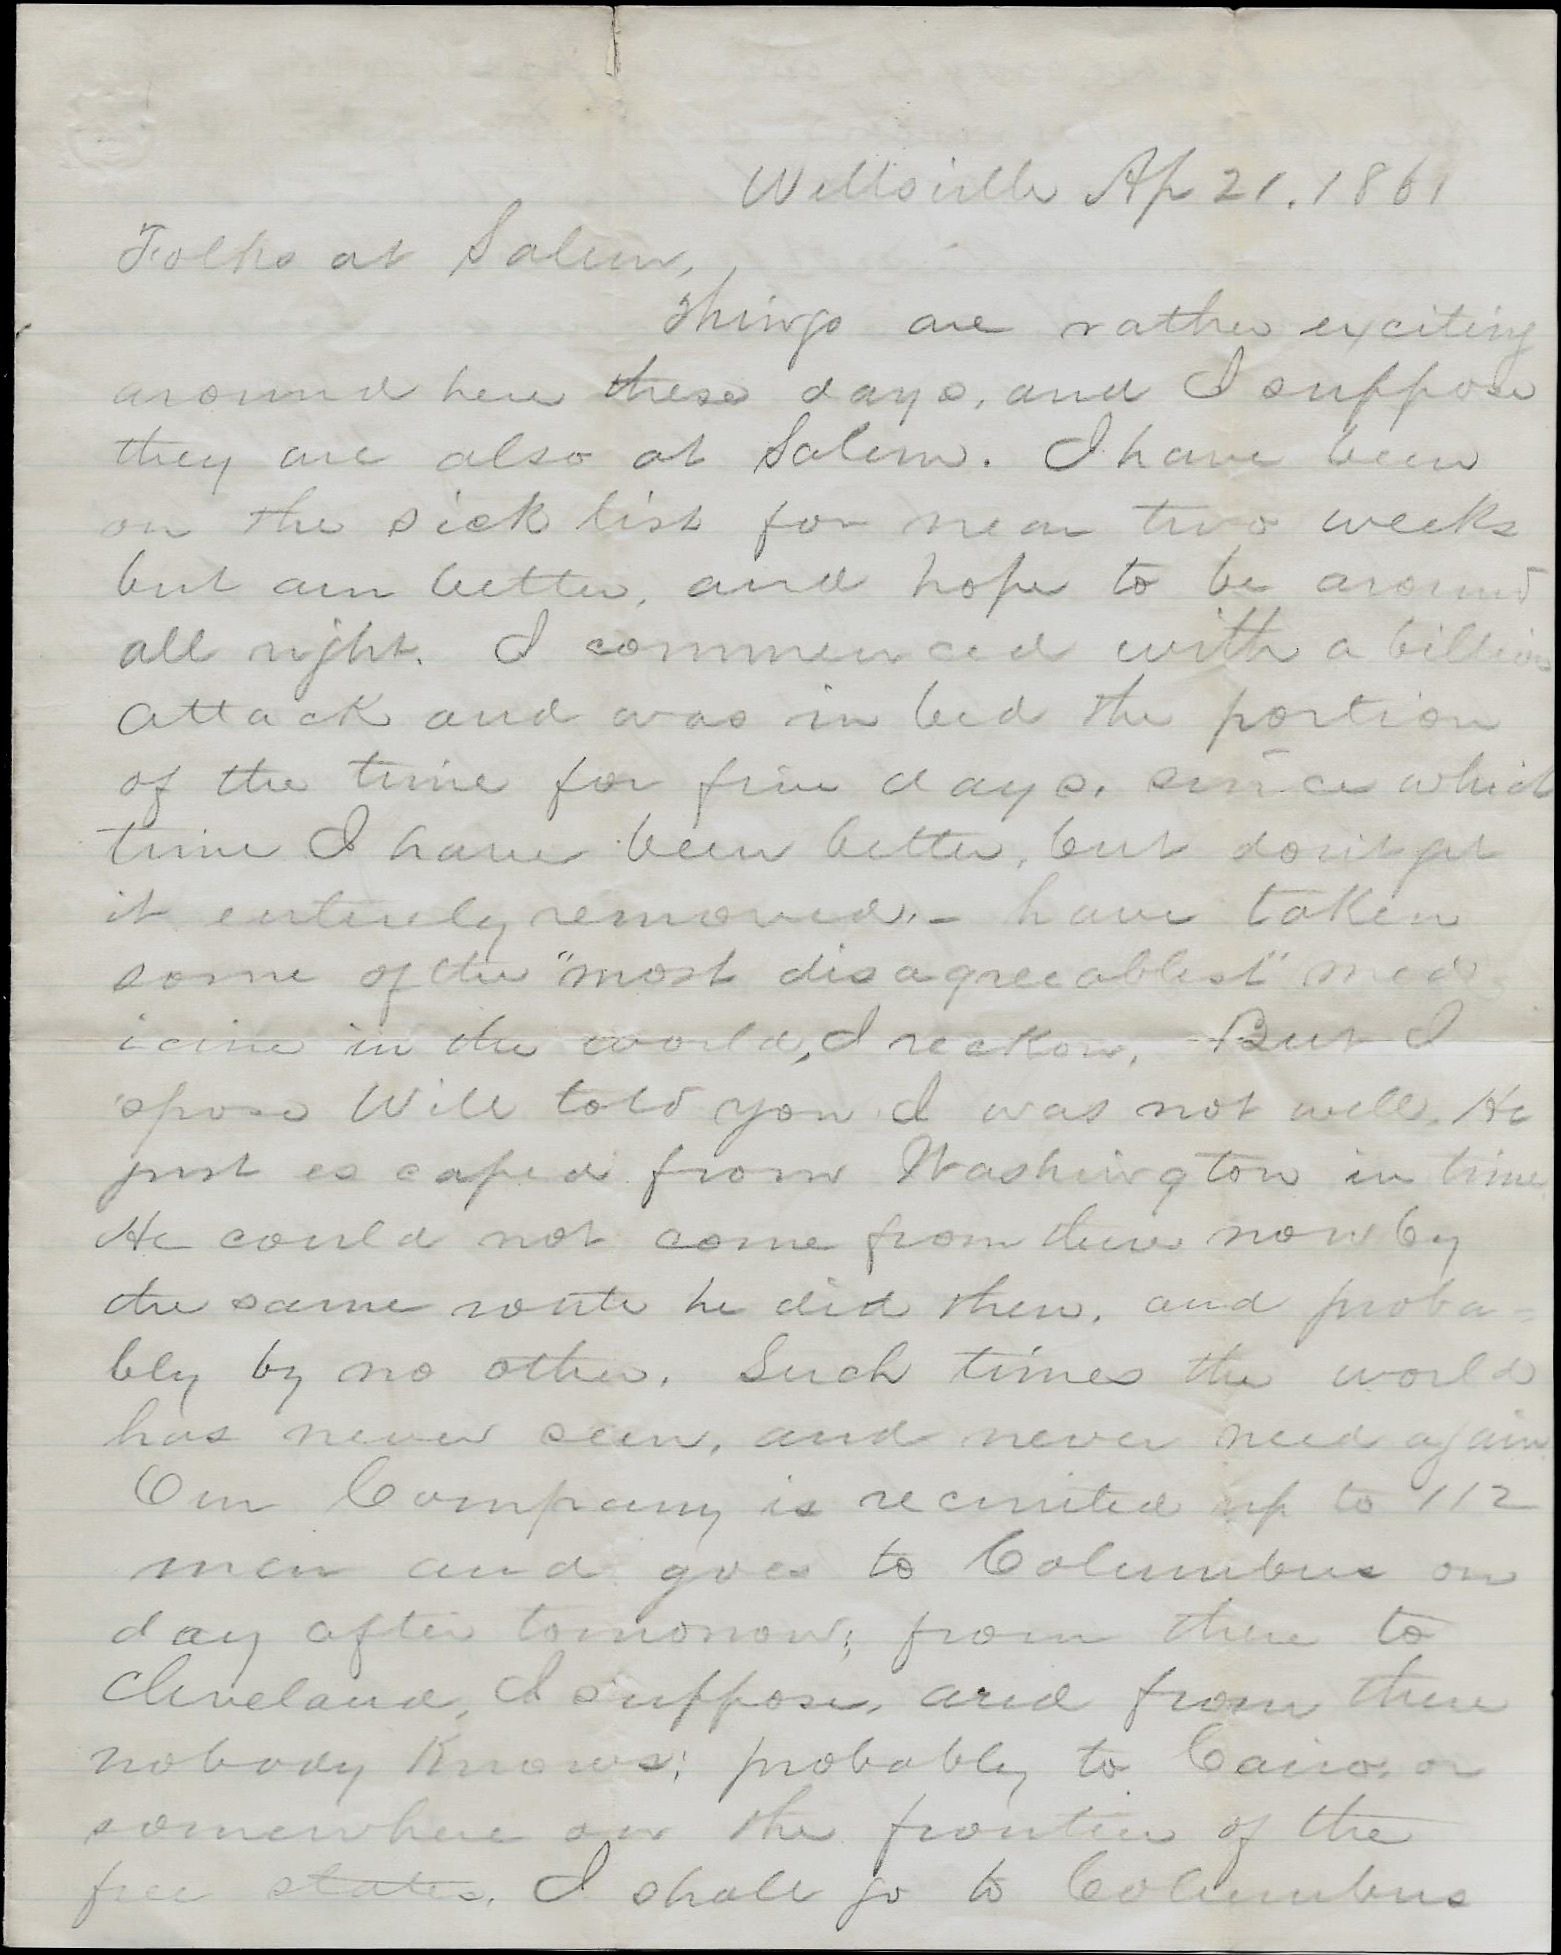 Wellsville Ap 21, 1861
Folks at Salem,
Things are rather exciting
around here these days, and I suppose
they are also at Salem. I have been
on the sick list for near two weeks
but am better, and hope to be around
all right. I commenced with a billious
attack and was in bed the portion
of the time for five days, since which
time I have been better, but don't get
it entirely removed, - have taken
some of the "most disagreeablest" med
icine in the world, I reckon. But I
'spose Will told you I was not well. He
just escaped from Washington in time
He could not come from there now by
the same route he did then, and proba-
bly by no other. Such times the world
has never seen, and never need again
Our Company is recruited up to 112
men and goes to Columbus on
day after tomorrow; from there to
Cleveland, I suppose, and from there
nobody knows; probably to Cairo, or
somewhere on the frontier of the
free states. I shall go to Columbus